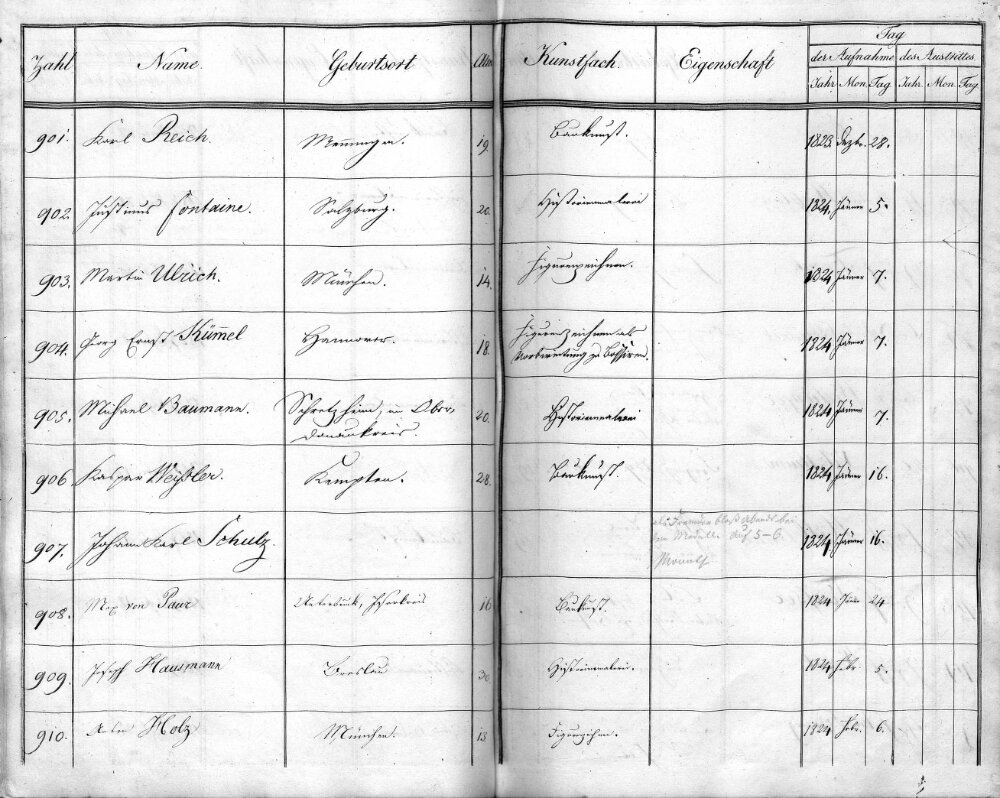 Tag
Zahl Name. Geburtsort Alter Kunstfach. Eigenschaft der Aufnahme des Austrittes.
Jahr Mon. Tag Jahr. Mon. Tag
901. Karl Reich. Memmingen. 19. Baukunst. 1823. Dezbr. 28.
902. Justinus Fontaine. Salzburg. 20. Historienmalerei 1824. Jänner 5.
903. Martin Ulrich. München. 14. Figurenzeichnen. 1824 Jänner 7.
904. Georg Ernst Kümmel Hannover. 18. Figurenzeichnen als
Vorbereitung zu Bossiren. 1824 Jänner 7.
905. Michael Baumann. Schretzheim, im Ober-
donaukreis. 20. Historienmalerei 1824 Jänner 7.
906. Kaspar Weißler. Kempten. 28. Baukunst. 1824 Jänner 16.
als Fremder bloß Abends bei
dem Modelle auf 5-6.
907. Johann Karl Schulz. 1824 Jänner 16.
Monath
908. Max von Paur Isarkreis 16 Baukunst. 1824 Jänner 24
909. Joseph Hausmann Breslau 30 Historienmalerei. 1824 Febr. 5.
910. Anton Holz München. 18 1824 Febr. 6.